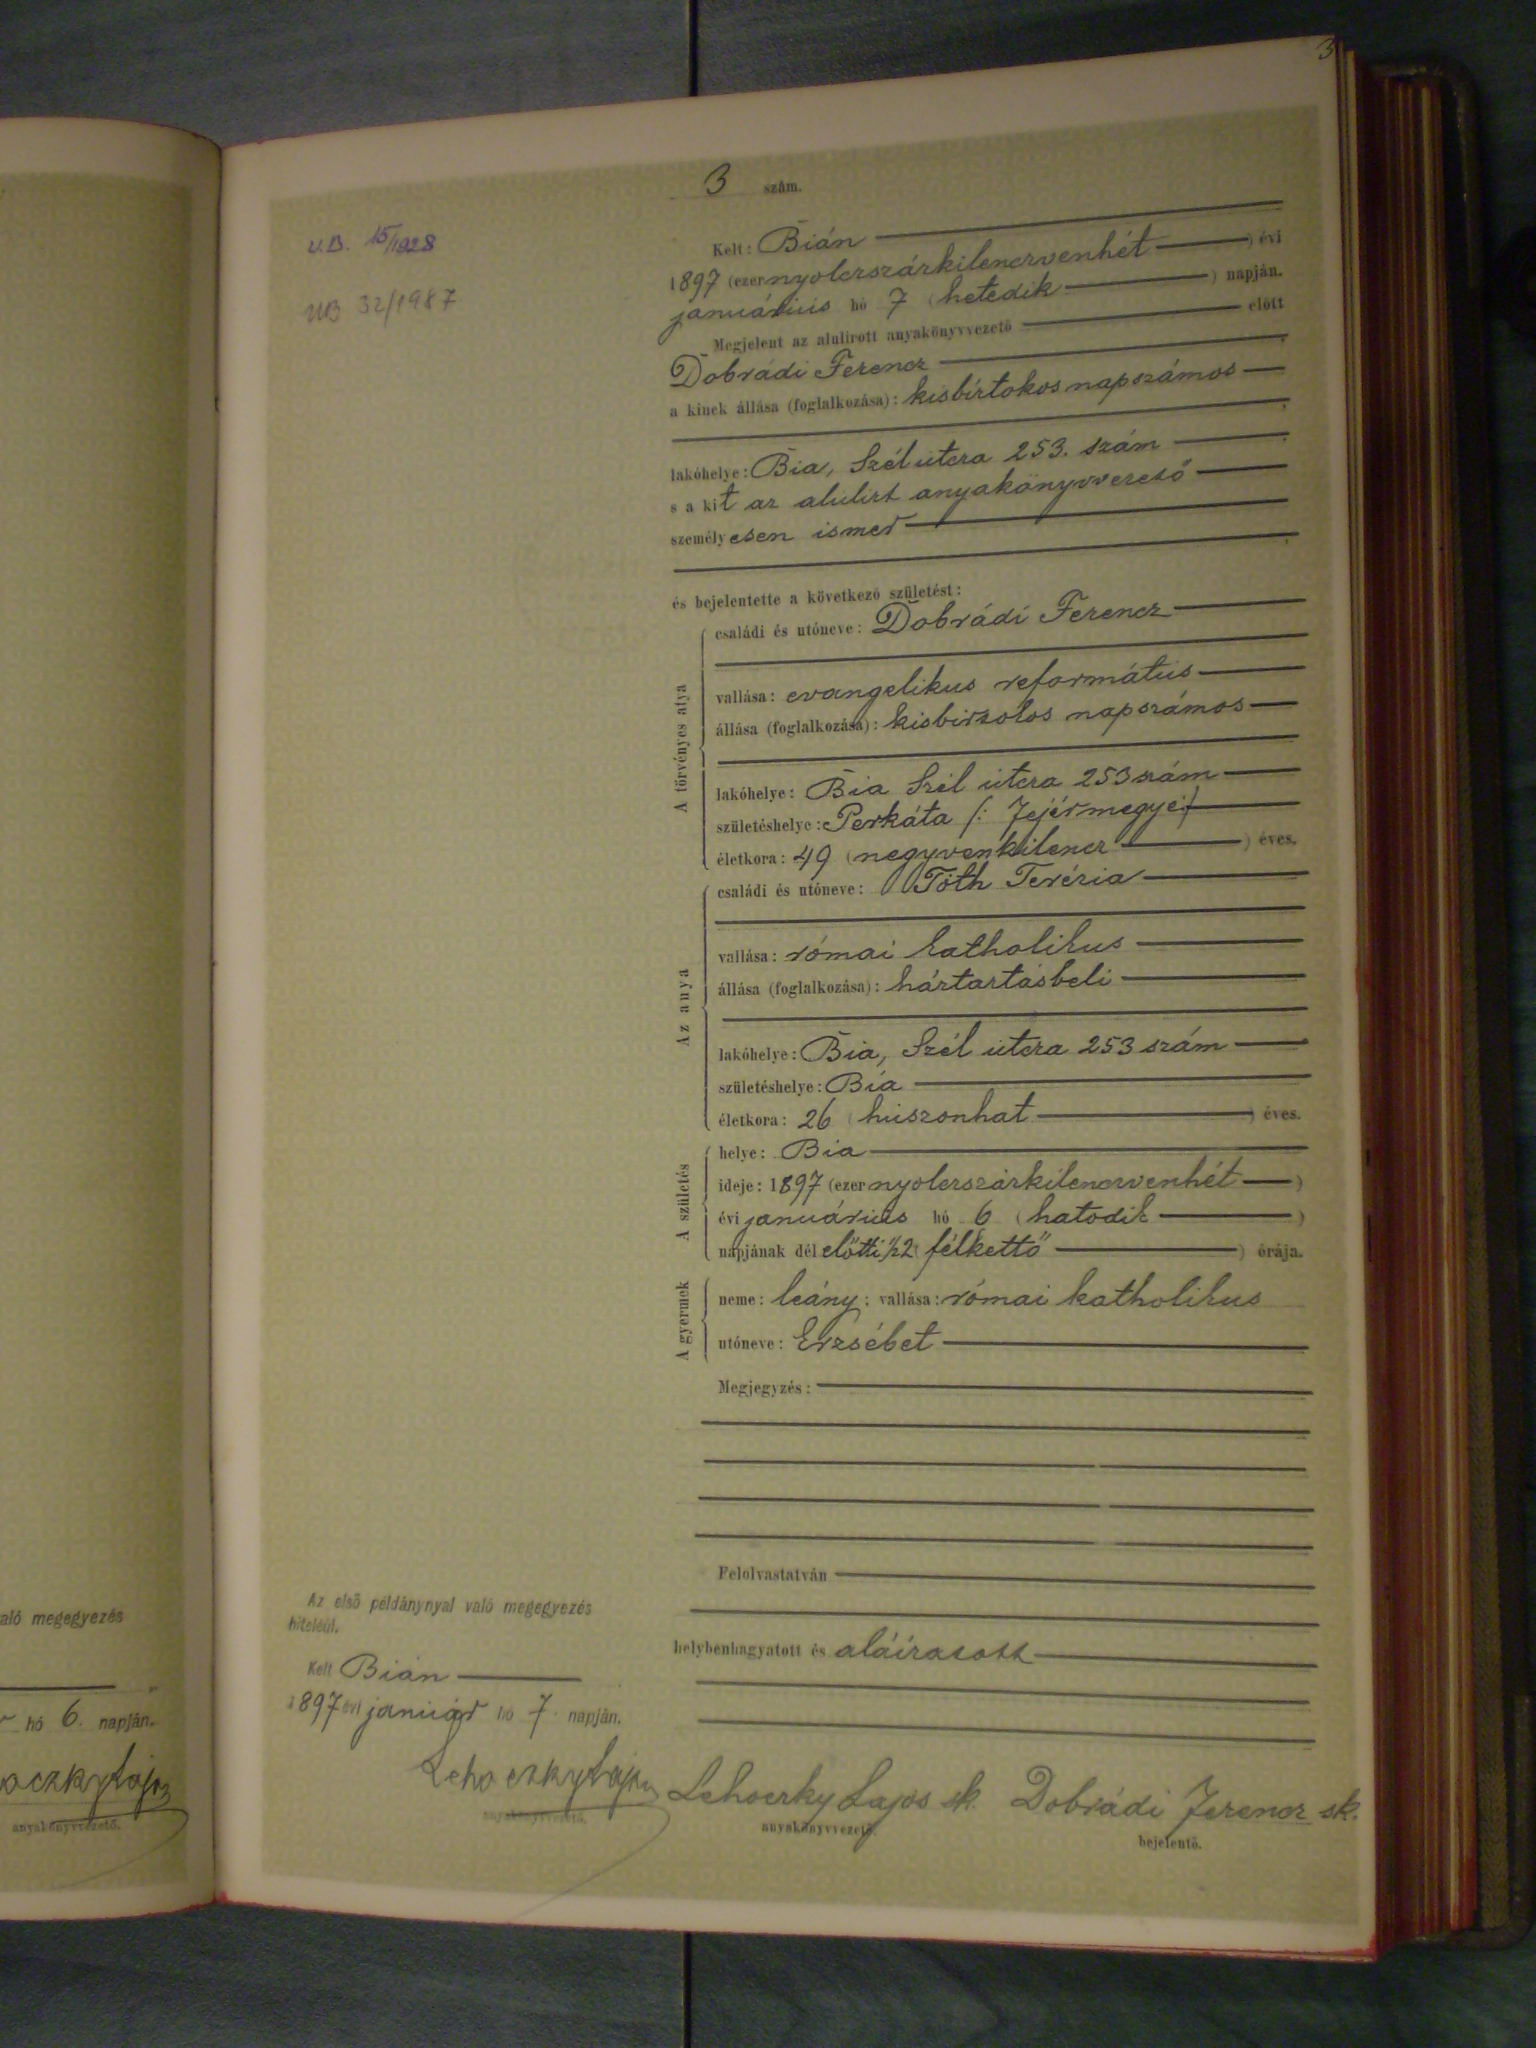 3
3 szám.
U.B. 15/1928
UB 32/1987
Kelt: Bián
1897 (ezernyolczszázkilenczvenhét) évi
januárius hó 7 (hetedik) napján.
Megjelent az alulirott anyakönyvvezető előtt
Dobrádi Ferencz
a kinek állása (foglalkozása): kisbirtokos napszámos
lakóhelye: Bia, Szél utcza 253. szám
s a kit az alulirt anyakönyvvezető
személyesen ismer
és bejelentette a következő születést:
A törvényes atya
családi és utóneve: Dobrádi Ferencz
vallása: evangelikus református
állása (foglalkozása): kisbirtokos napszámos
lakóhelye: Bia Szél utcza 253 szám
születéshelye: Perkáta (: Fejérmegye :)
életkora: 49 (negyvenkilencz) éves.
Az anya
családi és utóneve: Tóth Terézia
vallása: római katholikus
állása (foglalkozása): háztartásbeli
lakóhelye: Bia, Szél utcza 253 szám
születéshelye: Bia
életkora: 26 (huszonhat) éves.
A születés
helye: Bia
ideje: 1897 (ezernyolczszázkilenczvenhét)
évi januárius hó 6 (hatodik)
napjának délelőtti ½2 (félkettő) órája.
A gyermek
neme: leány; vallása: római katholikus
utóneve: Erzsébet
Megjegyzés:
Felolvastatván
helybenhagyatott és aláíratott
Az első példánynyal való megegyezés
hiteléül.
Kelt Bián
1897 évi január hó 7. napján.
Lehoczky Lajos
anyakönyvvezető.
Lehoczky Lajos sk. Dobrádi Ferencz sk.
anyakönyvvezető. bejelentő.
aló megegyezés
hó 6. napján.
oczky Lajos
anyakönyvvezető.